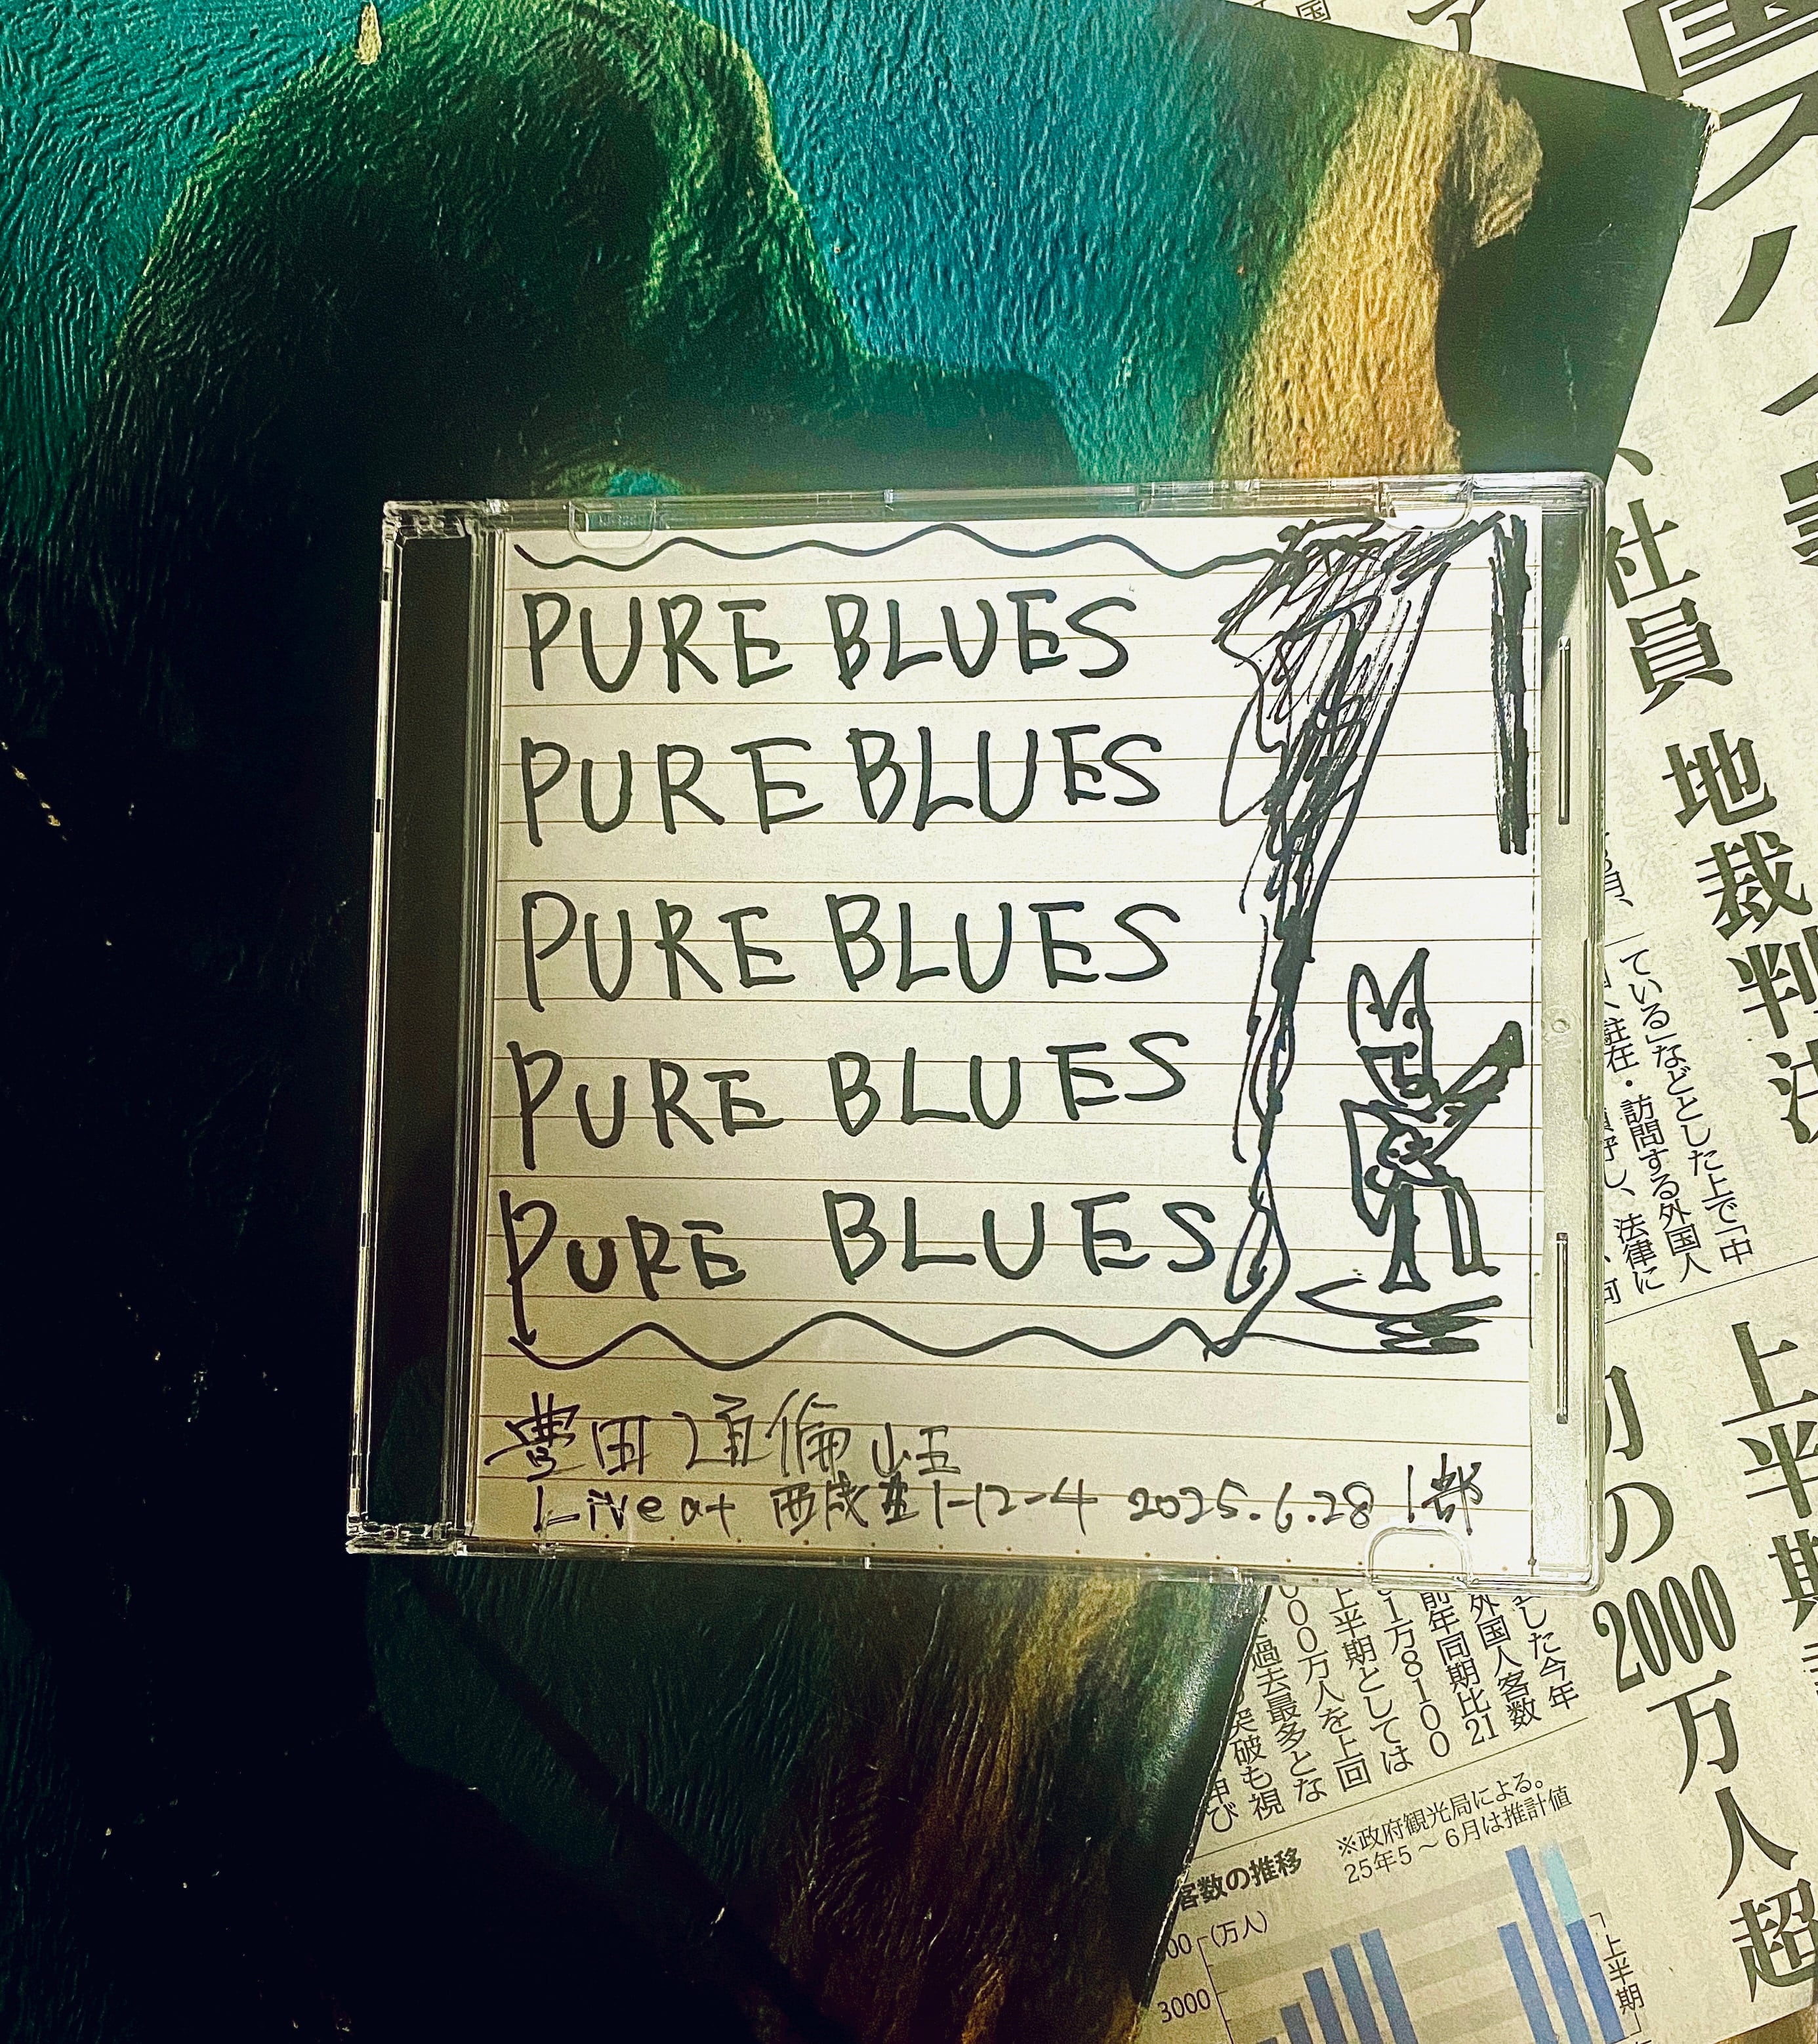 PURE BLUES
PURE BLUES
PURE BLUES
PURE BLUES
PURE BLUES
豊田道倫
Live at 西成 1-12-4 2025.6.28 1部
国
ア
スパイ
、社員 地裁判決
ている」などとした上で「中
駐在・訪問する外国人
し、法律に
上半期
初の2000万人超
した今年
外国人客数
前年同期比21
1万8100
上半期としては
00万人を上回
過去最多とな
突破も視
伸び
客数の推移
※政府観光局による。
25年5～6月は推計値
(万人)
3000
上半期